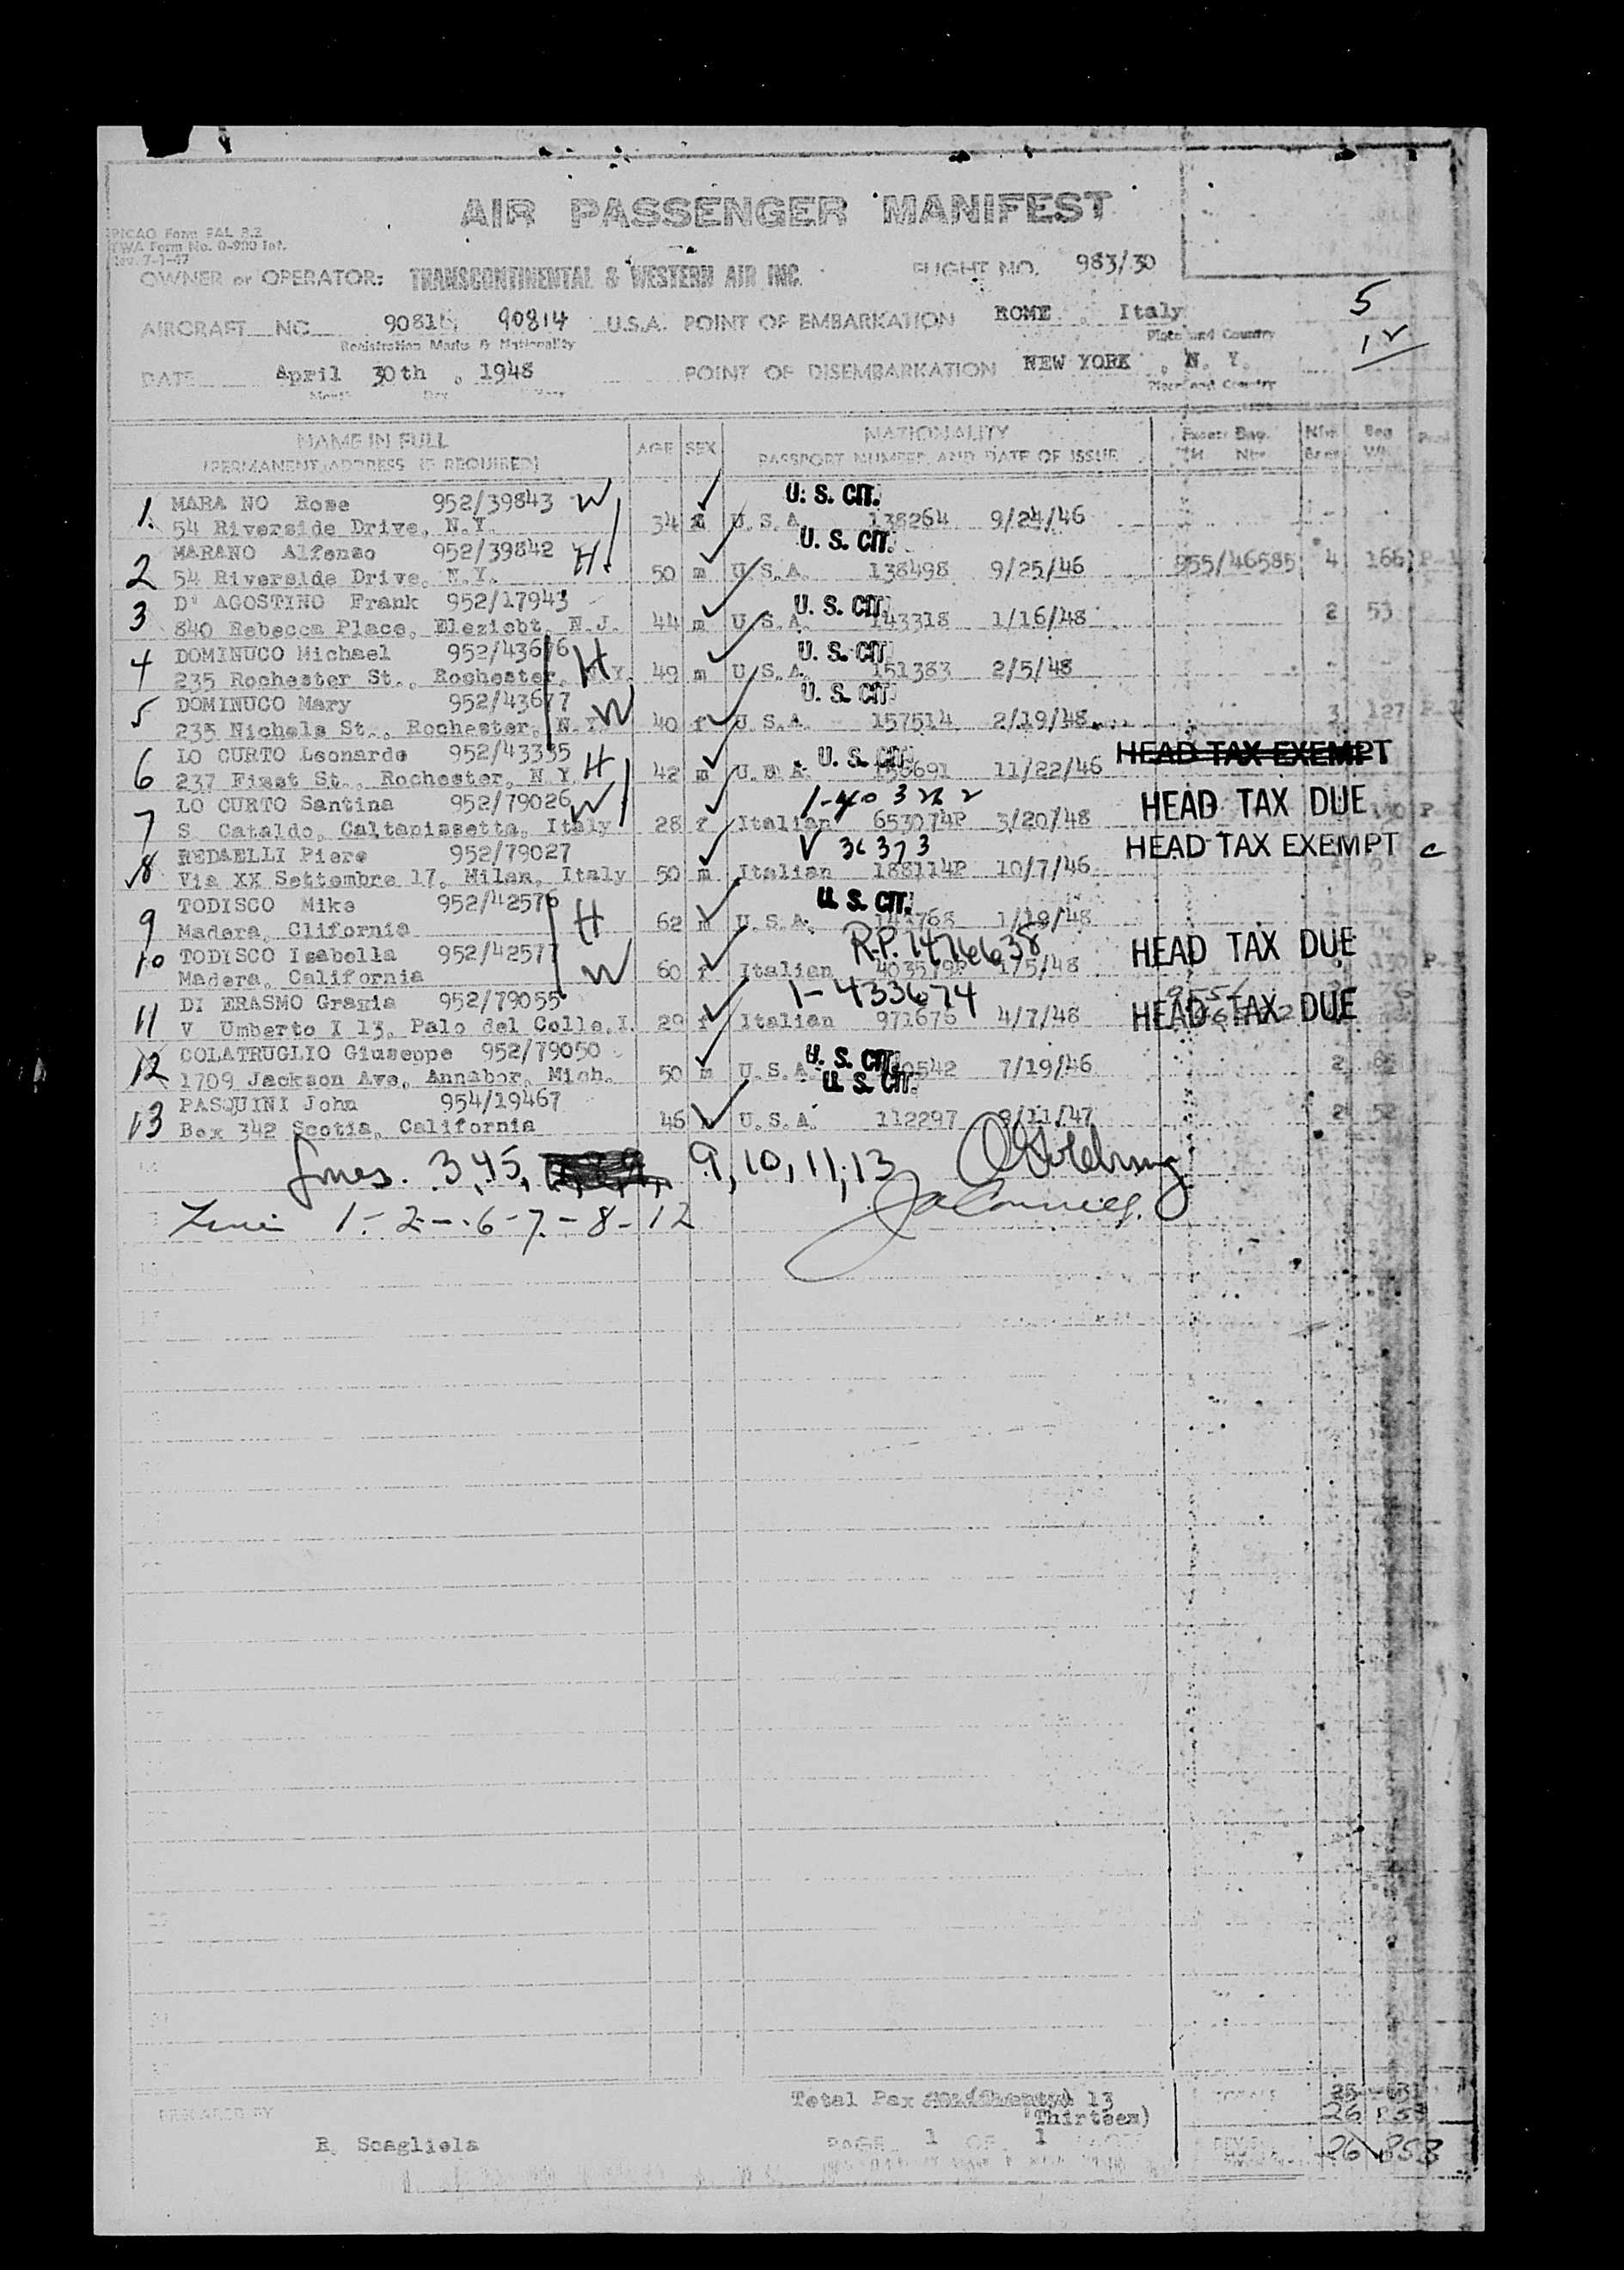 AIR PASSENGER MANIFEST
PICAO Form FAL P.2
TWA Form No. 0-900 Int.
Rev. 7-1-47
OWNER or OPERATOR: TRANSCONTINENTAL & WESTERN AIR INC. FLIGHT NO. 983/30
AIRCRAFT NC 90814 U.S.A. POINT OF EMBARKATION ROME, Italy 5
Registration Marks & Nationality Place and Country 12
DATE April 30th, 1948 POINT OF DISEMBARKATION NEW YORK, N. Y.
Month Day Year Place and Country
NAME IN FULL AGE SEX NATIONALITY Excess Bag.
(PERMANENT ADDRESS IF REQUIRED) PASSPORT NUMBER AND DATE OF ISSUE
1. MARA NO Rose 952/39843 W U.S. CIT.
54 Riverside Drive, N.Y. 34 U.S.A. 138264 9/24/46
2 MARANO Alfonso 952/39842 H U.S. CIT.
54 Riverside Drive, N.Y. 50 m U.S.A. 138498 9/25/46 955/46585 4 166
3 D' AGOSTINO Frank 952/17943 U.S. CIT.
840 Rebecca Place, Elezicbt, N.J. 44 m U.S.A. 143318 1/16/48 2 53
4 DOMINUCO Michael 952/43676 H U.S. CIT.
235 Rochester St., Rochester, N.Y. 49 m U.S.A. 151383 2/5/48
5 DOMINUCO Mary 952/43677 W U.S. CIT.
235 Nichols St., Rochester, N.Y. 40 f U.S.A. 157514 2/19/48 3 127
6 LO CURTO Leonardo 952/43335 H U.S. CIT. HEAD TAX EXEMPT
237 First St., Rochester, N Y. 42 m U.S.A. 11/22/46
7 LO CURTO Santina 952/79026 W HEAD TAX DUE
S. Cataldo, Caltapissetta, Italy 28 f Italian 653074P 3/20/48
8 REDAELLI Piero 952/79027 V 36373 HEAD TAX EXEMPT c
Via XX Settembre 17, Milan, Italy 50 m Italian 188114P 10/7/46
9 TODISCO Mike 952/42576 H U.S. CIT.
Madera, Clifornia 62 m U.S.A. 1/19/48
10 TODISCO Isabella 952/42577 W R.P. 1476638 HEAD TAX DUE
Madera, California 60 f Italian 1/5/48
11 DI ERASMO Grazia 952/79055 1-433674 HEAD TAX DUE
V Umberto I 13, Palo del Colle, I. 29 f Italian 971676 4/7/48
12 COLATRUGLIO Giuseppe 952/79050 U.S. CIT.
1709 Jackson Ave, Annabor, Mich. 50 m U.S.A. 7/19/46 2
13 PASQUINI John 954/19467 U.S. CIT.
Box 342 Scotia, California 46 U.S.A. 112297 2 52
Lines. 3,4,5, 9, 10, 11, 13
Line 1-2-6-7-8-12
Total Pax 13
(Thirteen)
PREPARED BY
R. Scagliola
PAGE 1 OF 1
TOTALS
26 853